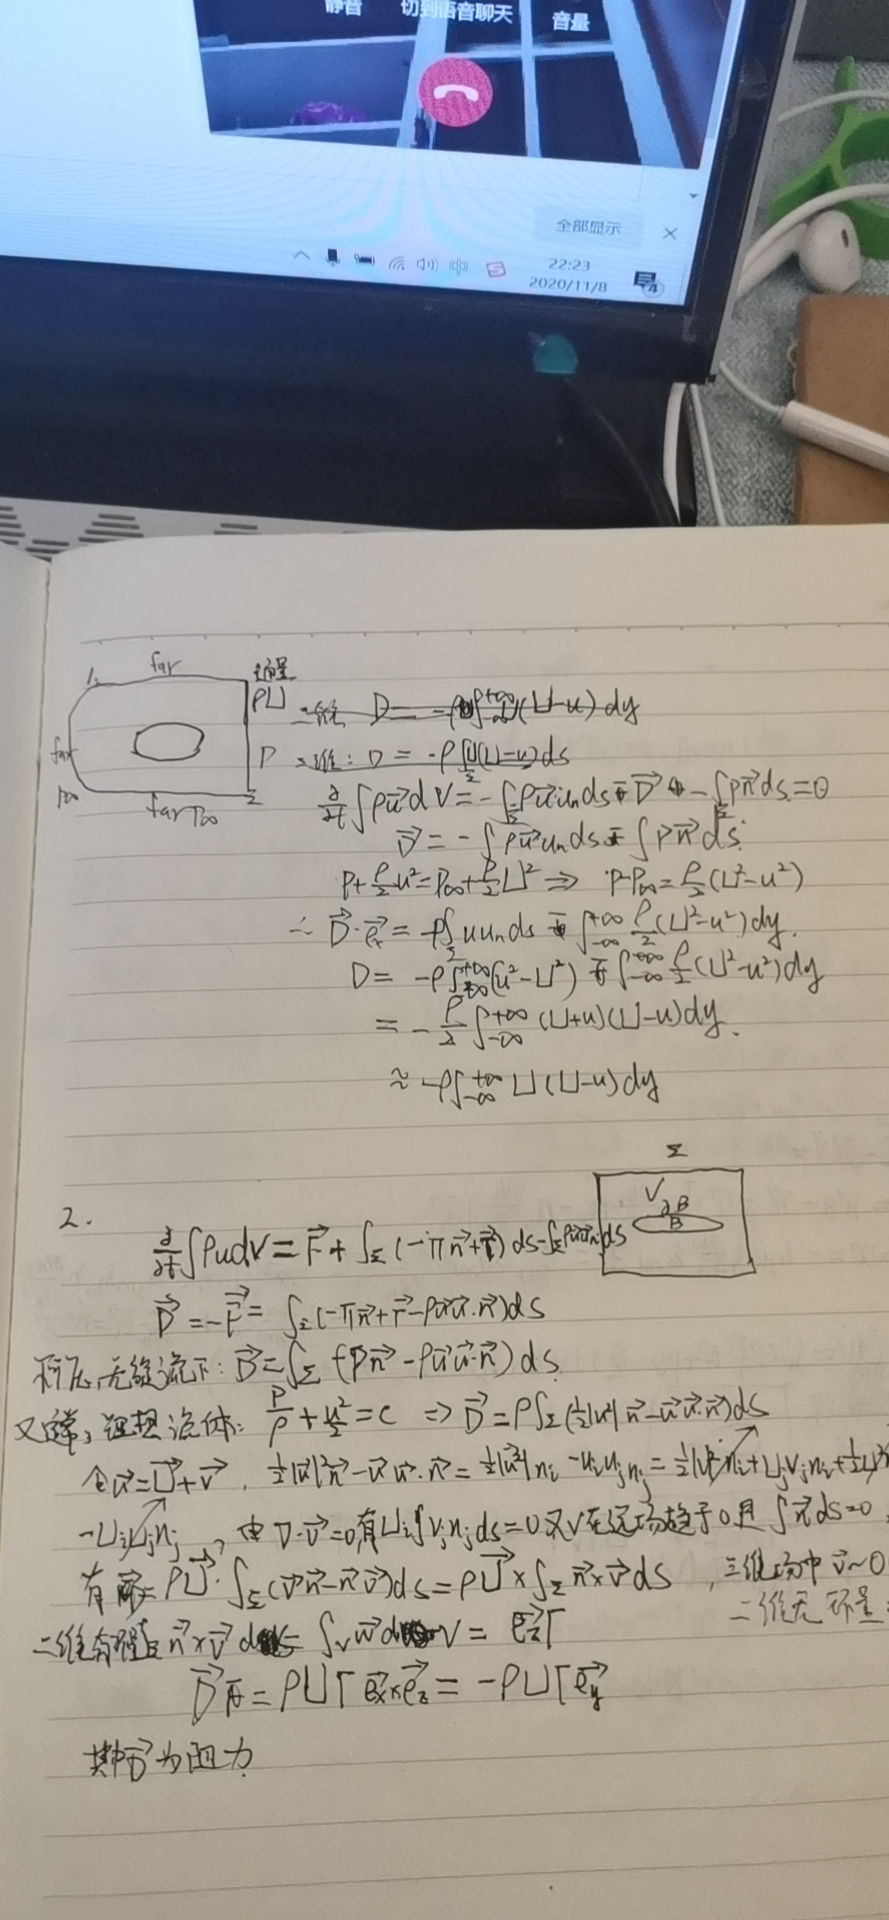 静音 切到语音聊天 音量
全部显示 ×
中
22:23
2020/11/8
4
1.
far
通量
ρU
far
P
P∞
far P∞
Σ
D = -ρ∫(U-u)dy
二维: D = -ρ∫U(U-u)ds
∂/∂t ∫ρu⃗dV = -∫ρu⃗uₙds D⃗ -∫Pn⃗ds=0
D⃗ = -∫ρu⃗uₙds ∓ ∫Pn⃗ds
P+ρ/2u²=P∞+ρ/2U² ⇒ P-P∞=ρ/2(U²-u²)
∴ D⃗·e⃗ₓ = -ρ∫uuₙds ∫₋∞⁺∞ρ/2(U²-u²)dy.
D= -ρ∫₋∞⁺∞(u²-U²) ∫₋∞⁺∞ρ/2(U²-u²)dy
= -ρ/2∫₋∞⁺∞(U+u)(U-u)dy.
≈ -ρ∫₋∞⁺∞U(U-u)dy
2.
Σ
V
∂B
B
∂/∂t∫ρudV = F⃗+∫Σ(-πn⃗+τ⃗)ds-∫Σρu⃗uₙds
D⃗=-F⃗=∫Σ(-πn⃗+τ⃗-ρu⃗u⃗·n⃗)ds
无旋流下: D⃗=∫Σ(-Pn⃗-ρu⃗u⃗·n⃗)ds
又定常,理想流体: P/ρ+u²/2=C ⇒ D⃗=ρ∫Σ(½|u²|n⃗-u⃗u⃗·n⃗)ds
令u⃗=U⃗+v⃗, ½|u⃗|²n⃗-u⃗u⃗·n⃗=½|u⃗²|nᵢ-uᵢuⱼnⱼ=½|v|²nᵢ+Uⱼvⱼnᵢ+½U²
-UᵢUⱼnⱼ, 由∇·v⃗=0有Uᵢ∫vⱼnⱼds=0又v在远场趋于0且∫n⃗ds=0,
有 ρU⃗·∫Σ(v⃗n⃗-n⃗v⃗)ds=ρU⃗×∫Σn⃗×v⃗ds, 三维场中v⃗~0
二维无环量
二维 n⃗×v⃗ds=∫ᵥw⃗dV=e⃗zΓ
D⃗=ρUΓe⃗ₓ×e⃗z=-ρUΓe⃗y
其中D⃗为阻力